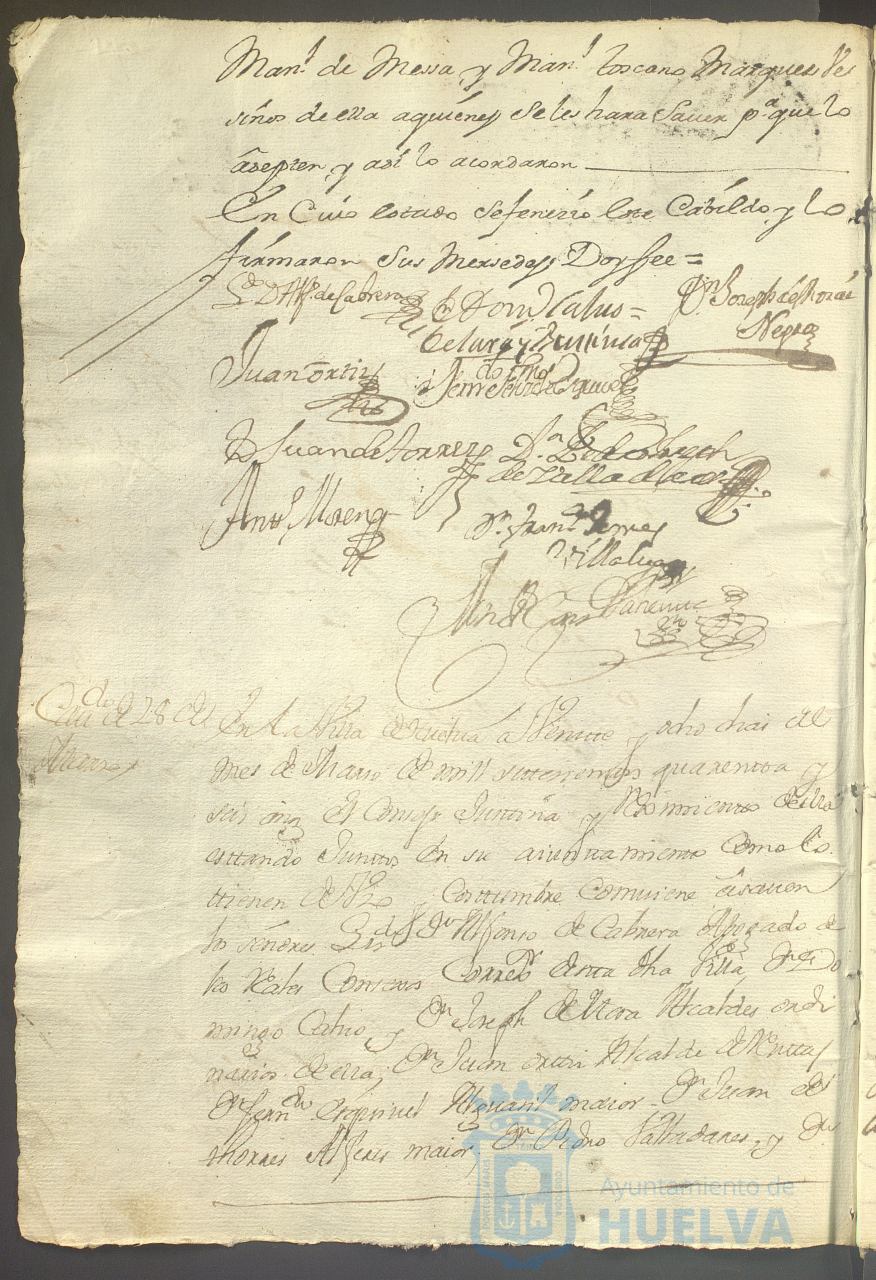 Man.l de Messa y Man.l toscano Marques Ve
sinos de ella aquienes se les hara Saver p.a que lo
asepten y asi lo acordaron
En Cuio estado se fenezio este Cabildo y lo
firmaron Sus Mersedes Doy fee =
L.do D. Alf.o de Cabrera
D.n Joseph de Mora
Negro
Juan ortiz
D.n Juan de torres
de Valladares
Ant.o Moreno
D.n Fran.co
Villalva
Cavi.do de 28 de
Marzo
En la Villa de Huelva a Veintte y ocho dias del
mes de Marzo de mill settezientos quarentta y
seis años el Consejo Justizia y Reximiento de ella
esttando Junttos en su aiunttamiento como lo
ttienen de Vso y Costtumbre Comviene a saver
los señores Lizd.o D.n Alfonso de Cabrera Abogado de
los Reales Consexos Corre.r de esta dha Villa, D.n Do
mingo Calvo y D.n Joseph de Mora Alcaldes ordi
narios de ella; D.n Juan orttiz Alcalde de
D.n Fern.do esquivel Alguasil maior D.n Juan de
thorres Alferes maior, D.n Pedro Valladares, y D.n
Ayuntamiento de
HUELVA